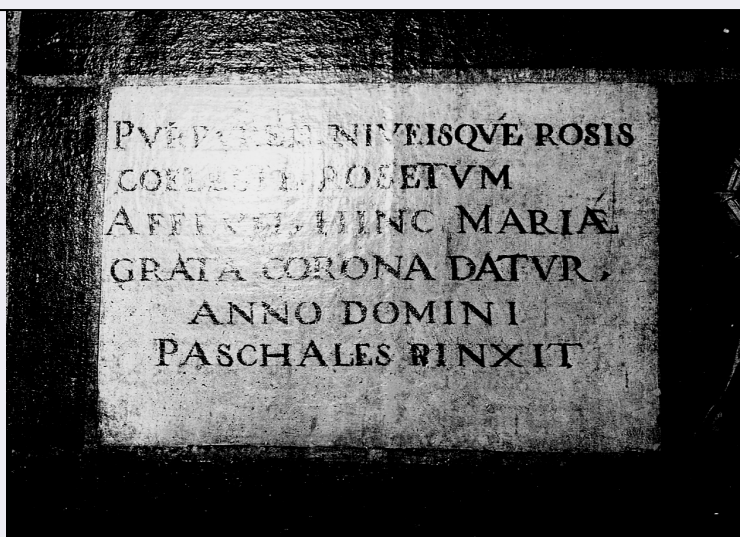 PVRPVREIS NIVEISQVÉ ROSIS
COELESTE ROSETVM
AFFLVET, HINC MARIÆ
GRATA CORONA DATVR,
ANNO DOMINI
PASCHALES PINXIT